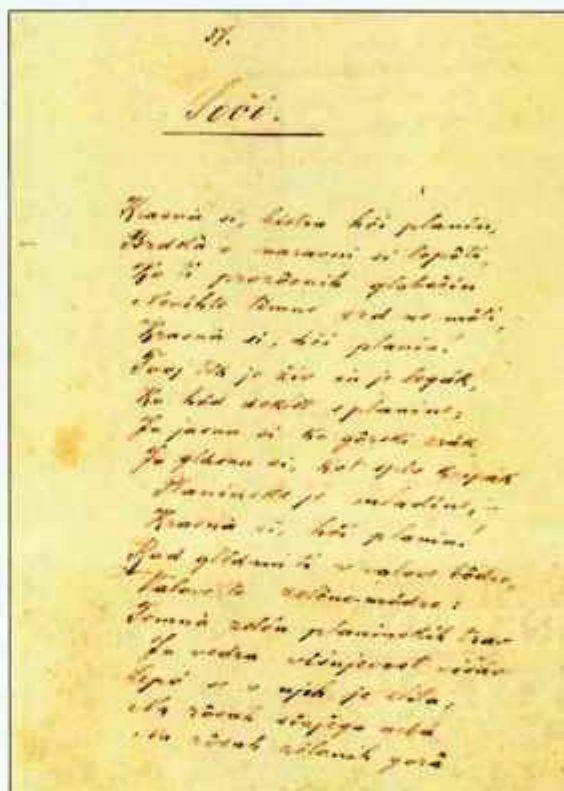 Soči.
Krasnà si, bistra hči planin,
Brdkà v naravni si lepôti,
Ko ti prozornih globočin
Nevihte temne srd ne môti,
Krasnà si, hči planin!
Tvoj tek je živ in je legák,
Ko hód deklet s planine;
In jasna si ko gôrski zrák
In glasna si, kot spev krepák
Planinske je mladine, –
Krasnà si, hči planin!
Rad glédam ti v valove bôdre,
Valove te zelêno-módre:
Temnà zelén planinskih trav
In vedra višnjevost višav
Lepó se v njih je zlila;
Na rôsah sinjega nebá
Na rôsah zelenih gorá